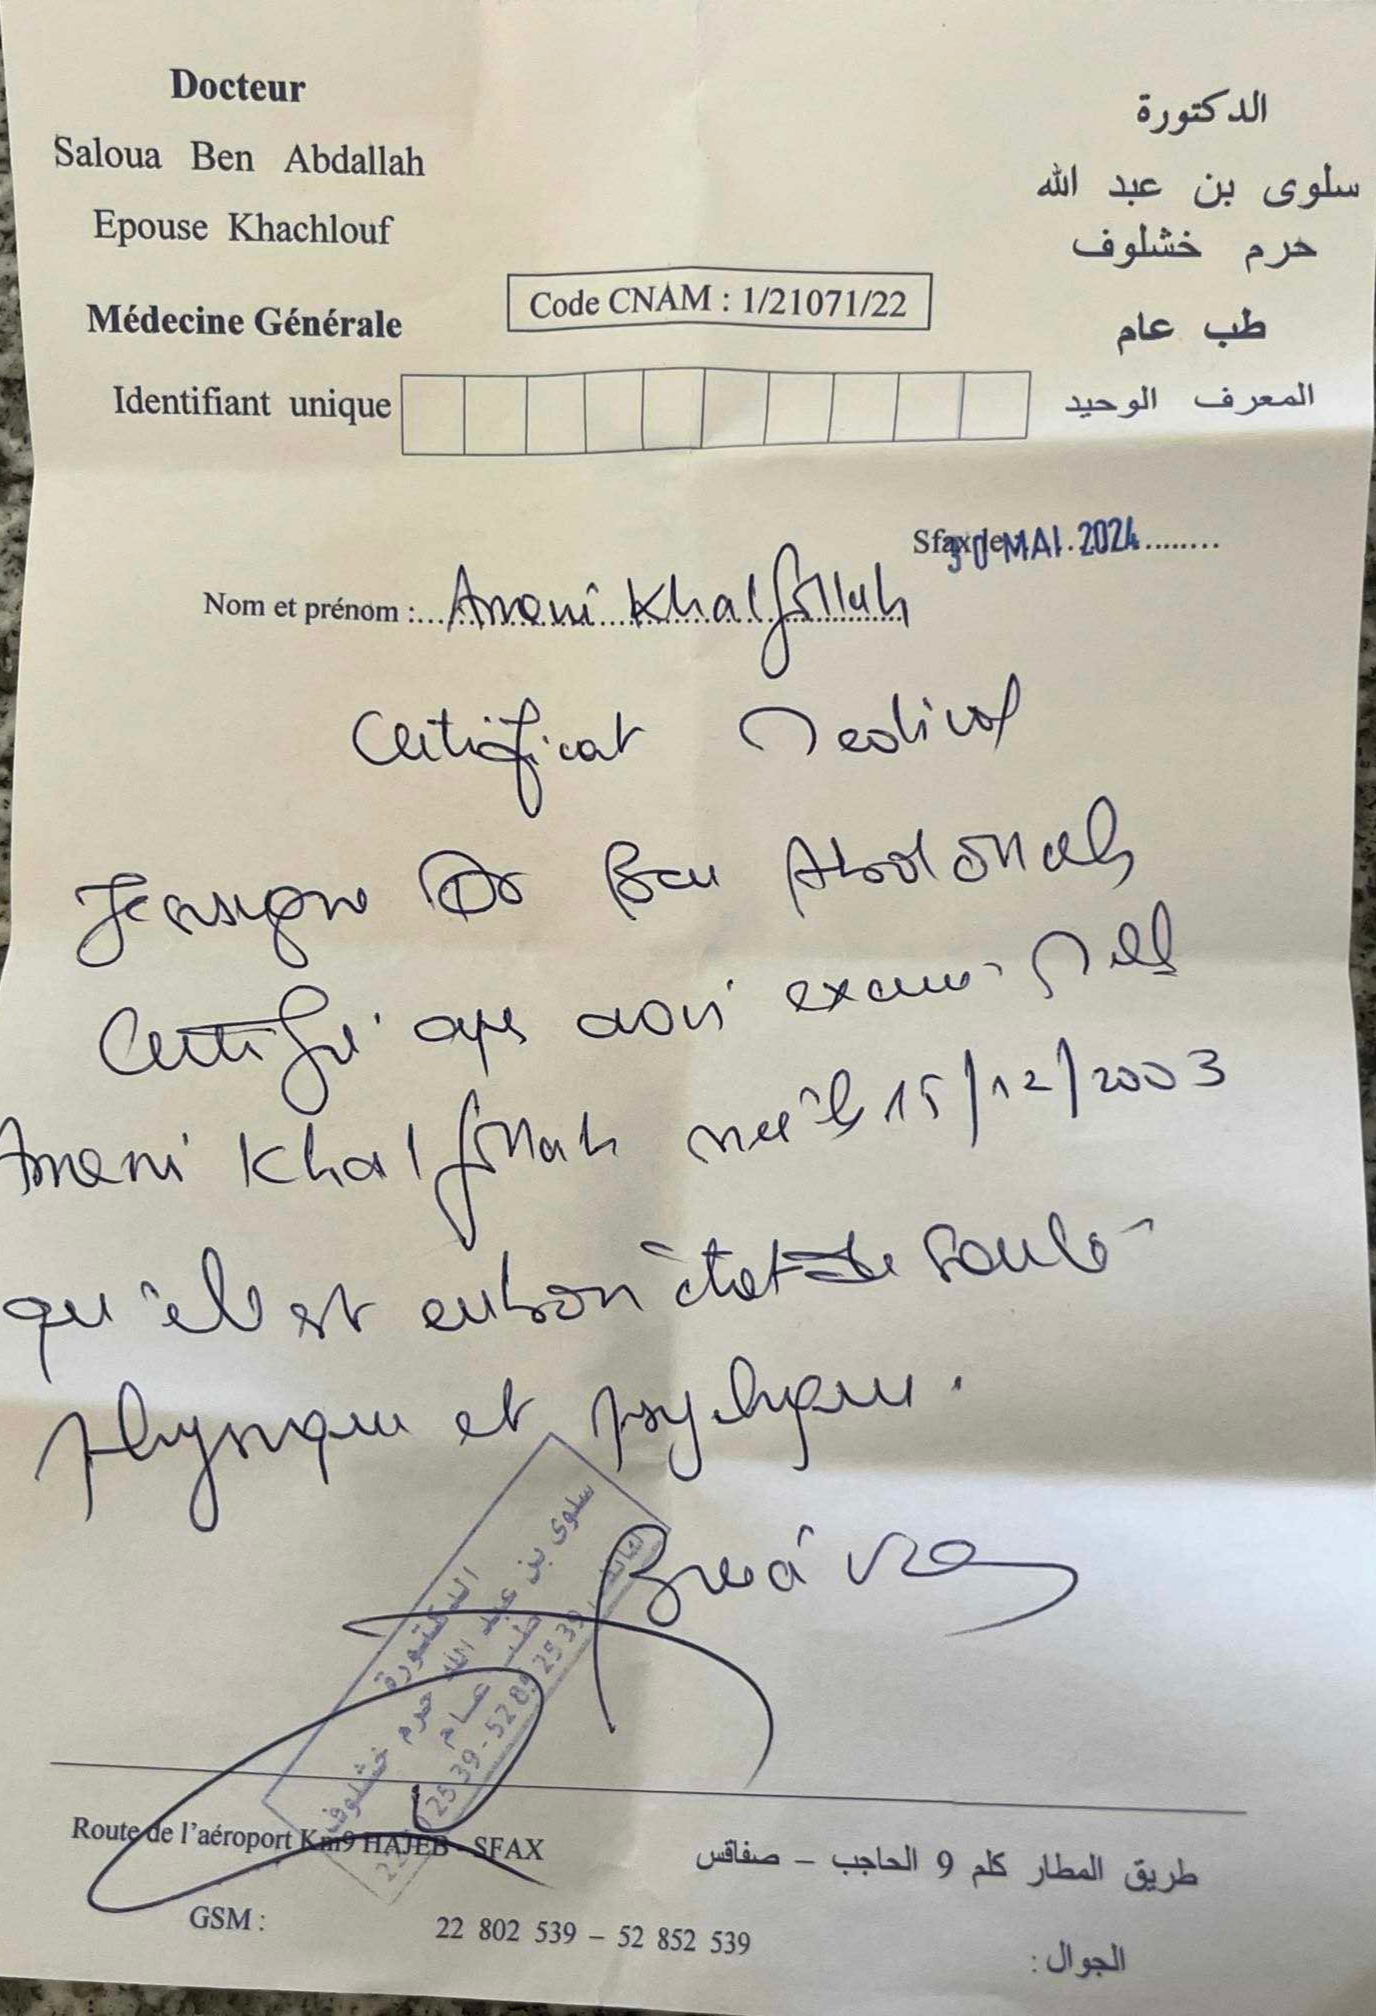 Docteur
Saloua Ben Abdallah
Epouse Khachlouf
Médecine Générale
الدكتورة
سلوى بن عبد الله
حرم خشلوف
طب عام
Code CNAM : 1/21071/22
Identifiant unique
المعرف الوحيد
Sfax le 30 MAI 2024
Nom et prénom : Ameni Khalfallah
Certificat Medical
Je ssigne Dr Ben Abdallah
Certifie après avoir examiné Melle
Ameni Khalfallah née le 15/12/2003
qu'elle est en bon état de santé
physique et psychique.
الدكتورة
سلوى بن عبد الله حرم خشلوف
طب عام
Route de l'aéroport Km9 HAJEB - SFAX
طريق المطار كلم 9 الحاجب – صفاقس
GSM : 22 802 539 – 52 852 539
الجوال :